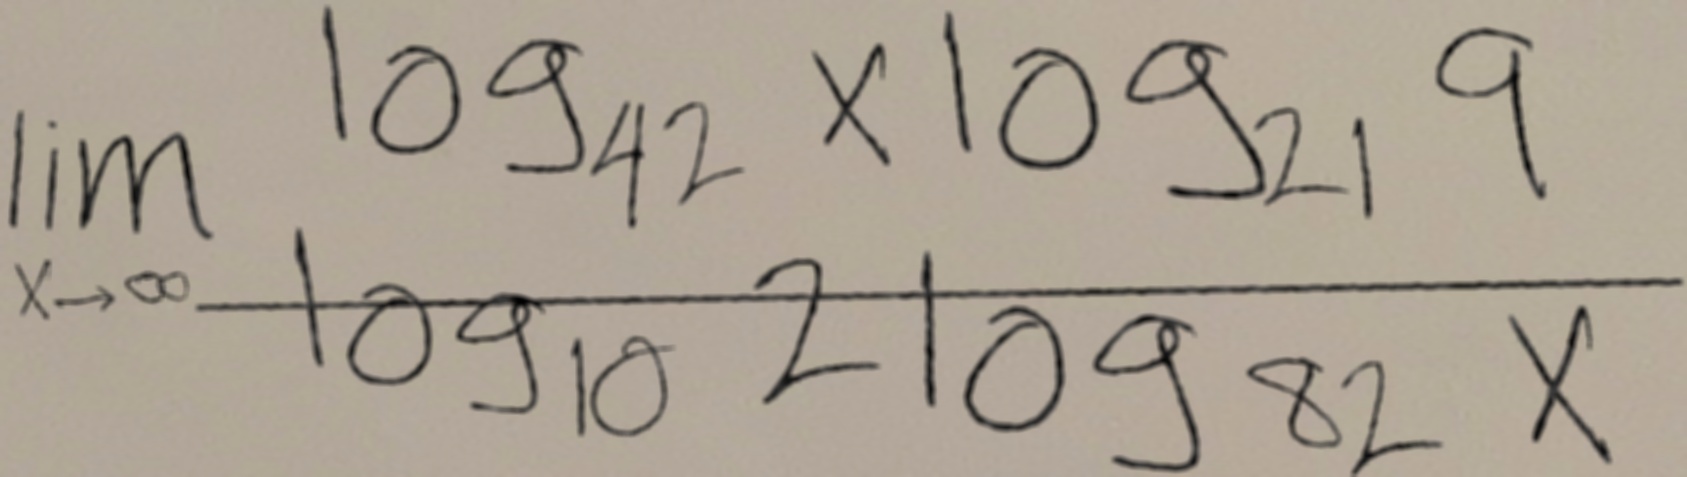 lim x→∞ \frac{log_{42} x log_{21} 9}{log_{10} 2 log_{82} x}